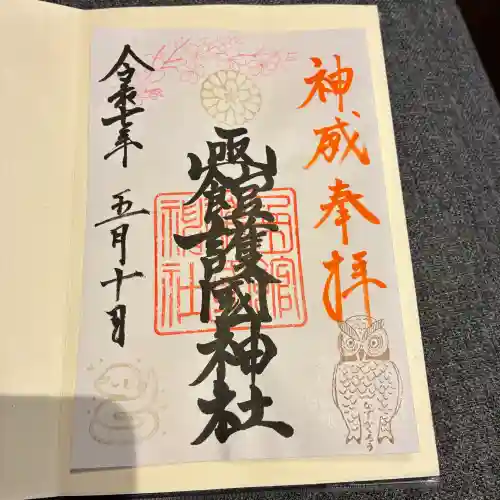 神威奉拝
函館護國神社
令和七年 五月十日